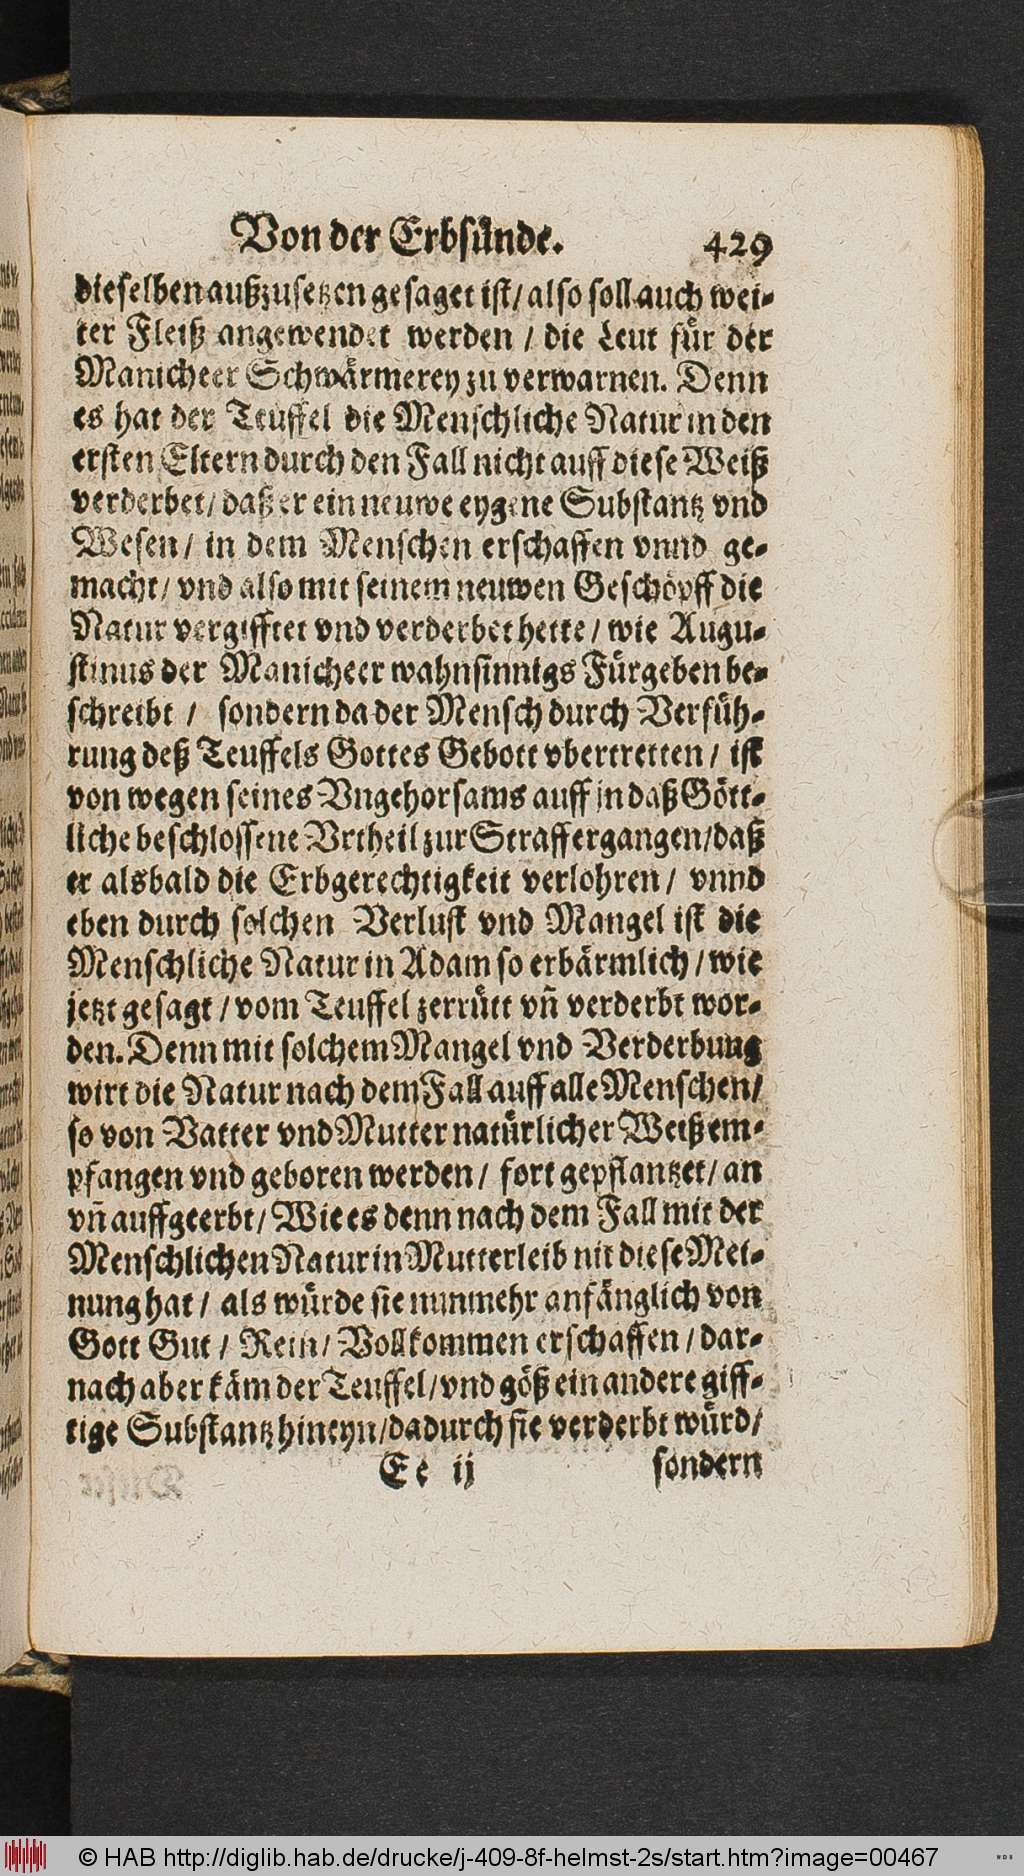 Von der Erbsünde. 429
dieselben außzusetzen gesaget ist/ also soll auch wei-
ter Fleiß angewendet werden / die Leut für der
Manicheer Schwärmerey zu verwarnen. Denn
es hat der Teuffel die Menschliche Natur in den
ersten Eltern durch den Fall nicht auff diese Weiß
verderbet/ daß er ein neuwe eygene Substantz vnd
Wesen/ in dem Menschen erschaffen vnnd ge-
macht/ vnd also mit seinem neuwen Geschöpff die
Natur vergifftet vnd verderbet hette/ wie Augu-
stinus der Manicheer wahnsinnigs Fürgeben be-
schreibt / sondern da der Mensch durch Verfüh-
rung deß Teuffels Gottes Gebott vbertretten/ ist
von wegen seines Vngehorsams auff jn daß Gött-
liche beschlossene Vrtheil zur Straff ergangen/daß
er alsbald die Erbgerechtigkeit verlohren/ vnnd
eben durch solchen Verlust vnd Mangel ist die
Menschliche Natur in Adam so erbärmlich/ wie
jetzt gesagt / vom Teuffel zerrütt vn̄ verderbt wor-
den. Denn mit solchem Mangel vnd Verderbung
wirt die Natur nach dem Fall auff alle Menschen/
so von Vatter vnd Mutter natürlicher Weiß em-
pfangen vnd geboren werden/ fort gepflantzet/ an
vn̄ auffgeerbt/ Wie es denn nach dem Fall mit der
Menschlichen Natur in Mutterleib nit diese Mei-
nung hat/ als würde sie nunmehr anfänglich von
Gott Gut / Rein/ Vollkommen erschaffen/ dar-
nach aber käm der Teuffel/vnd göß ein andere giff-
tige Substantz hineyn/dadurch sie verderbt würd/
Ee ij sondern
© HAB http://diglib.hab.de/drucke/j-409-8f-helmst-2s/start.htm?image=00467